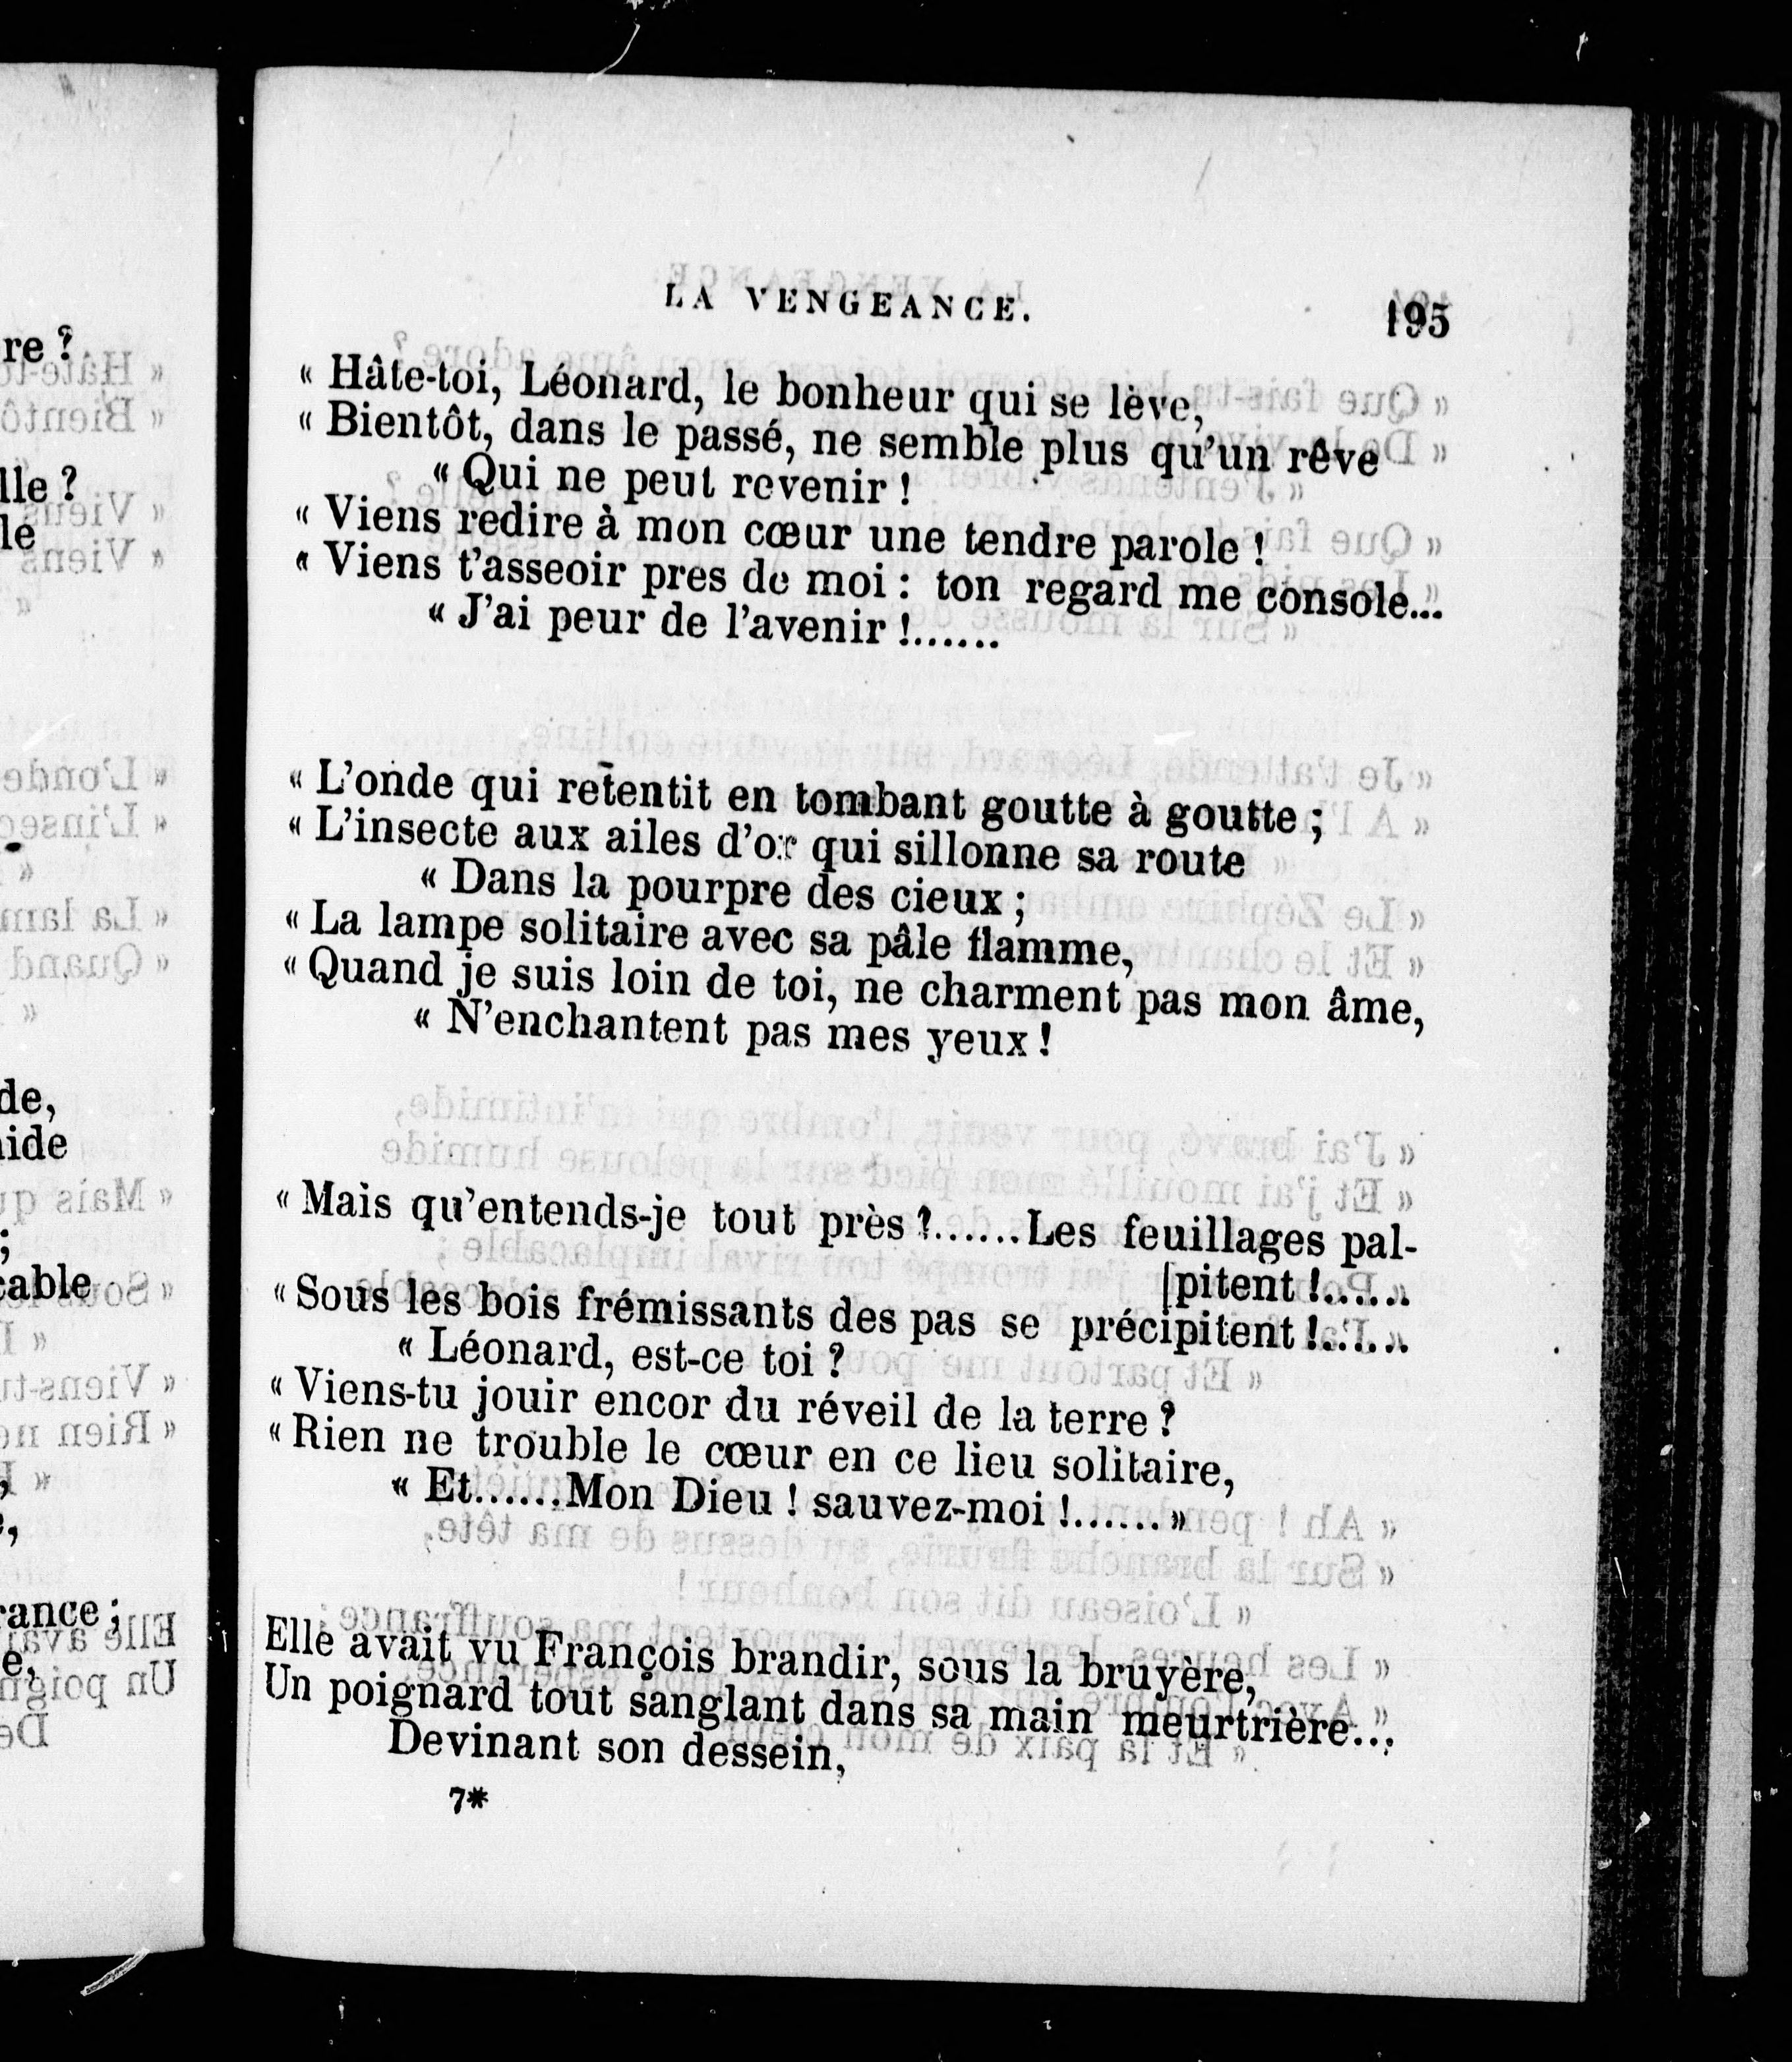 re ?
lle ?
le
de,
ide
;
cable
,
,
rance ;
e,
LA VENGEANCE. 195
« Hâte-toi, Léonard, le bonheur qui se lève,
« Bientôt, dans le passé, ne semble plus qu'un rêve
« Qui ne peut revenir !
« Viens redire à mon cœur une tendre parole !
« Viens t'asseoir pres de moi : ton regard me console...
« J'ai peur de l'avenir !.......
« L'onde qui retentit en tombant goutte à goutte ;
« L'insecte aux ailes d'or qui sillonne sa route
« Dans la pourpre des cieux ;
« La lampe solitaire avec sa pâle flamme,
« Quand je suis loin de toi, ne charment pas mon âme,
« N'enchantent pas mes yeux !
« Mais qu'entends-je tout près ?......Les feuillages pal-
[pitent !......
« Sous les bois frémissants des pas se précipitent !......
« Léonard, est-ce toi ?
« Viens-tu jouir encor du réveil de la terre ?
« Rien ne trouble le cœur en ce lieu solitaire,
« Et......Mon Dieu ! sauvez-moi !...... »
Elle avait vu François brandir, sous la bruyère,
Un poignard tout sanglant dans sa main meurtrière...
Devinant son dessein,
7*